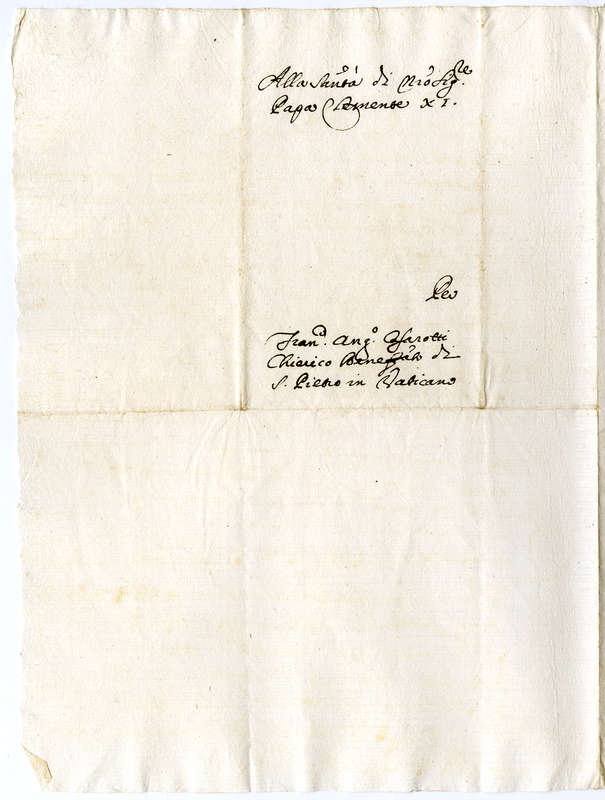 Alla San.tà di Nro Sig.re
Papa Clemente XI.
Per
Fran.o Ang.o
Chierico Benefi.to di
S. Pietro in Vaticano